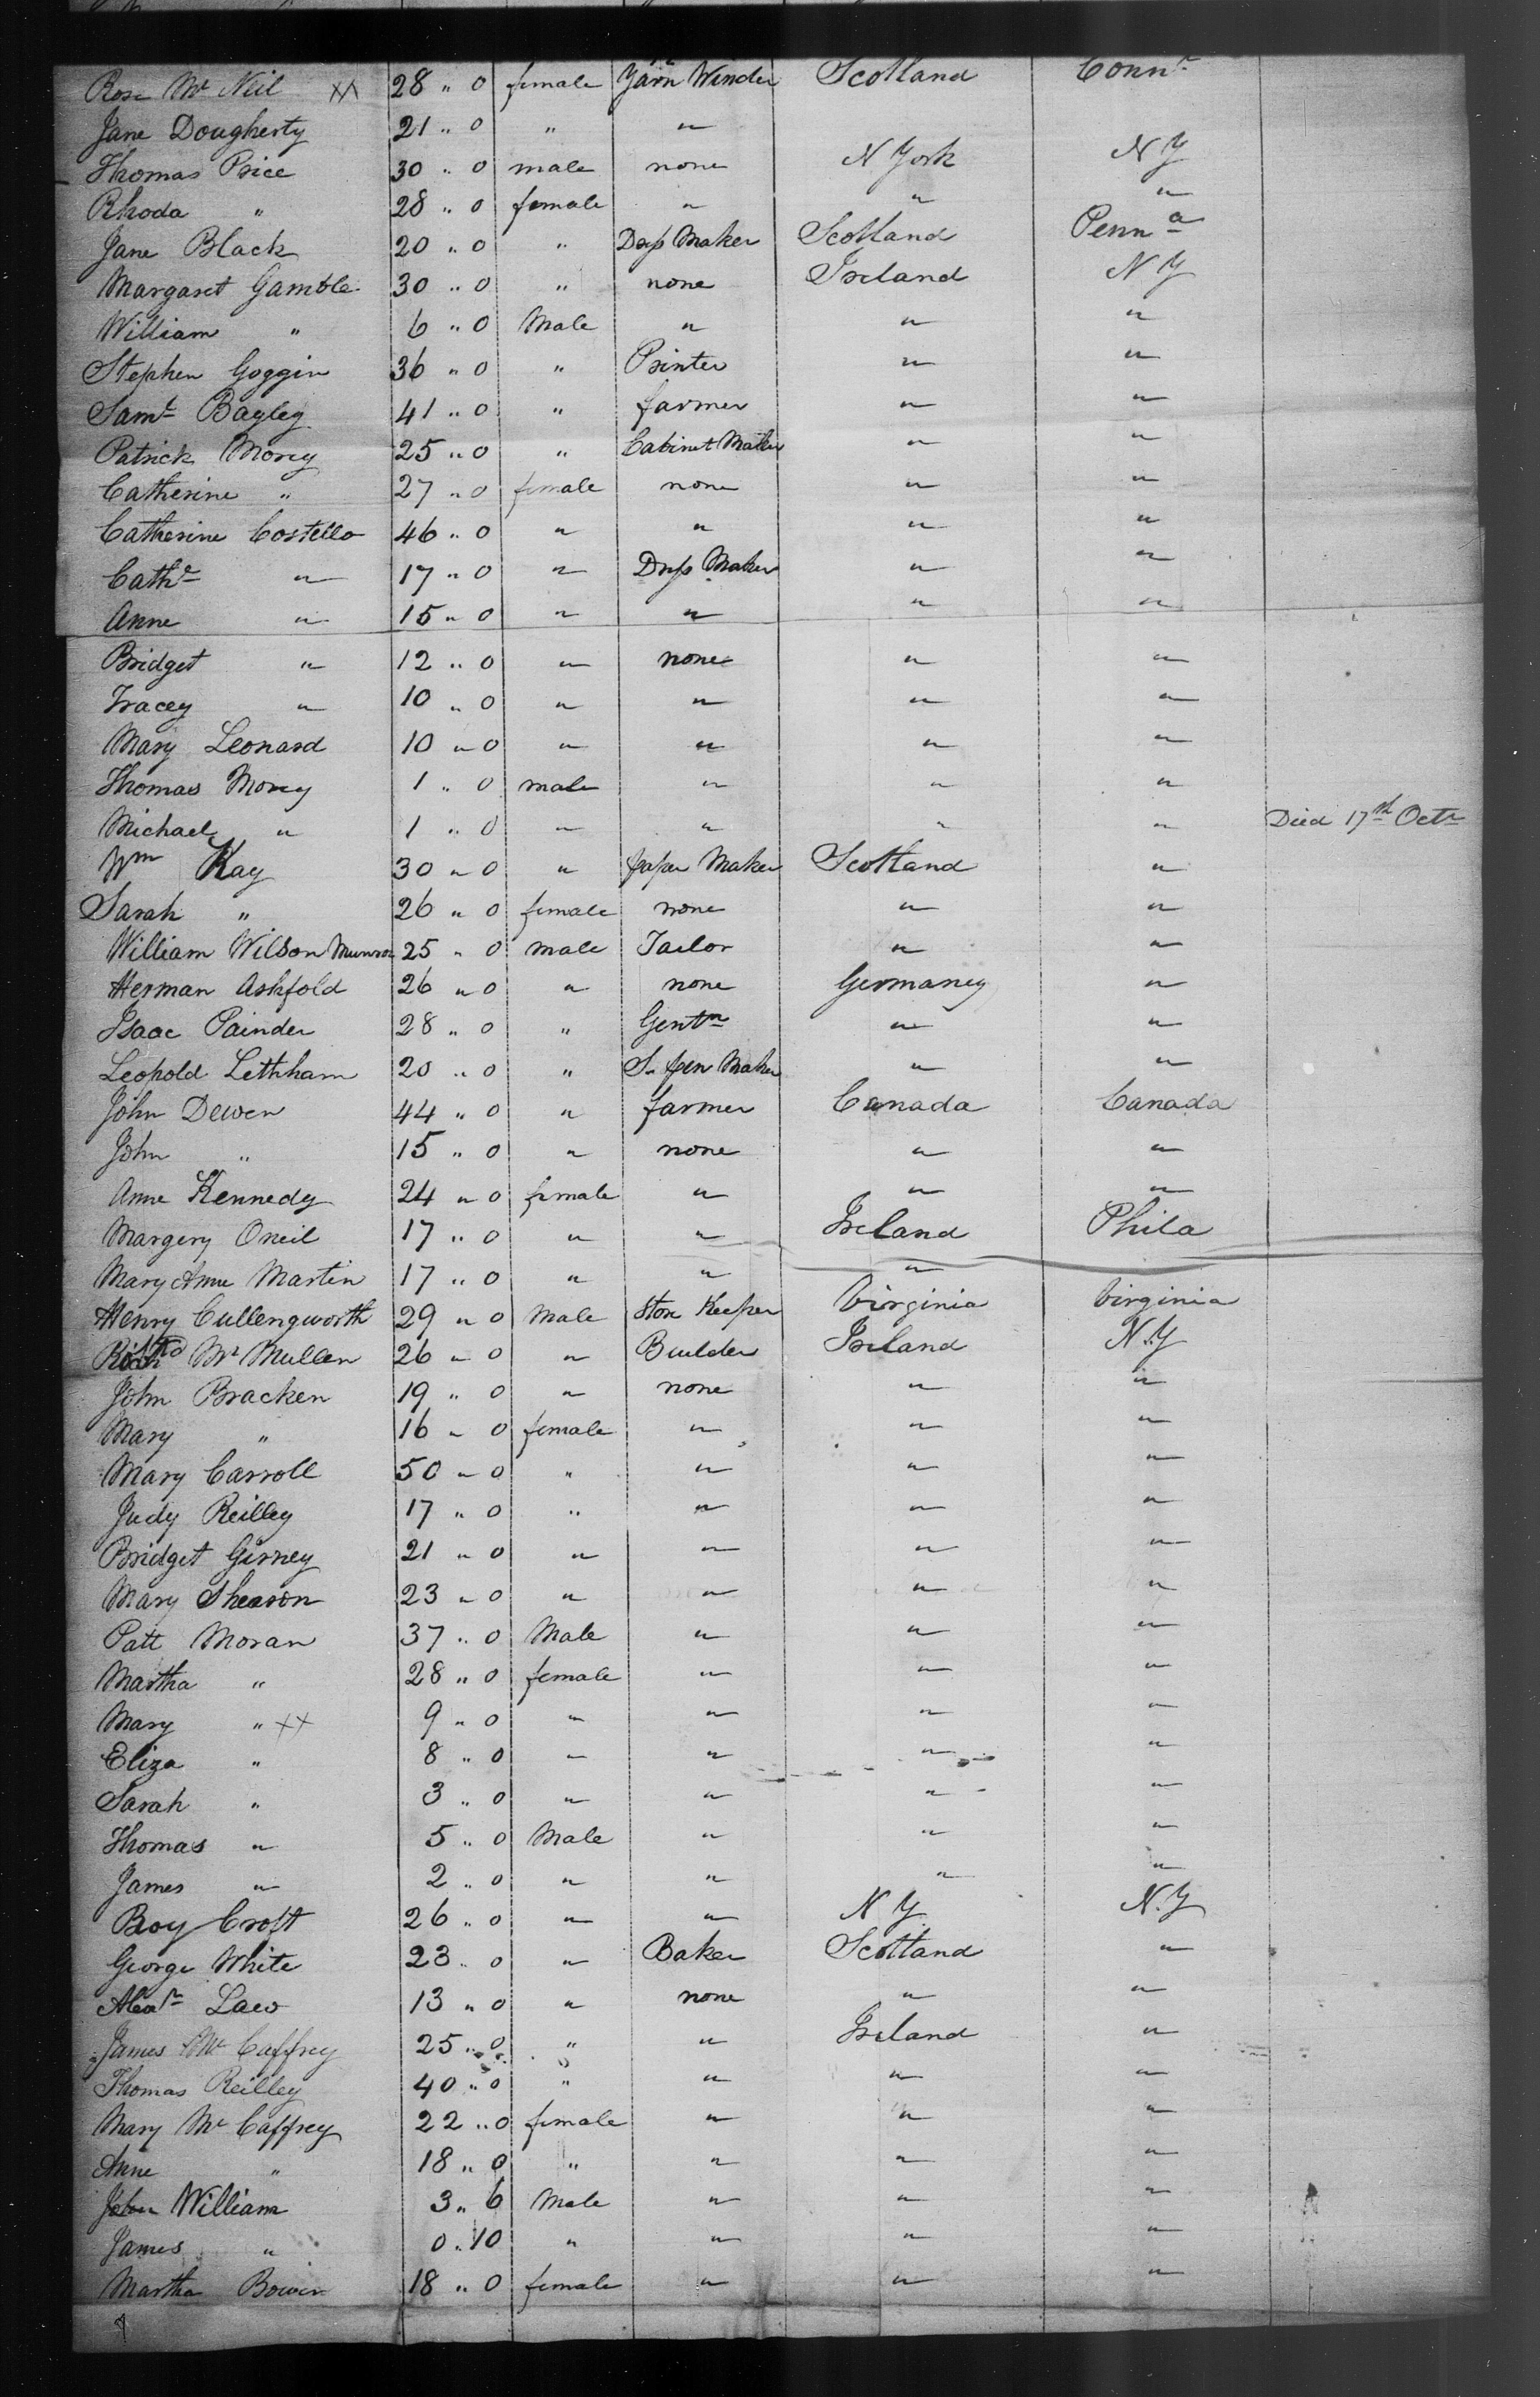 Rose Mc Neil XX 28 " 0 female Yarn Winder Scotland Connt
Jane Dougherty 21 " 0 " "
Thomas Price 30 " 0 male none N York N Y
Rhoda " 28 " 0 female " " "
Jane Black 20 " 0 " Dress Maker Scotland Penna
Margaret Gamble 30 " 0 " none Ireland N Y
William " 6 " 0 Male " " "
Stephen Goggin 36 " 0 " Printer " "
Saml Bagley 41 " 0 " farmer " "
Patrick Morey 25 " 0 " Cabinet Maker " "
Catherine " 27 " 0 female none " "
Catherine Costello 46 " 0 " " " "
Cathe " 17 " 0 " Dress Maker " "
Anne " 15 " 0 " " " "
Bridget " 12 " 0 " none " "
Tracey " 10 " 0 " " " "
Mary Leonard 10 " 0 " " " "
Thomas Morey 1 " 0 male " " "
Michael " 1 " 0 " " " " Died 17th Octr
Wm Kay 30 " 0 " paper Maker Scotland "
Sarah " 26 " 0 female none " "
William Wilson Munroe 25 " 0 male Tailor " "
Herman Askfold 26 " 0 " none Germaney "
Isaac Painder 28 " 0 " Gentn " "
Leopold Lethham 20 " 0 " S. pen Maker " "
John Dewen 44 " 0 " farmer Canada Canada
John " 15 " 0 " none " "
Anne Kennedy 24 " 0 female " " "
Margery Oneil 17 " 0 " " Ireland Phila
Mary Anne Martin 17 " 0 " " "
Henry Cullengworth 29 " 0 Male Store Keeper Virginia Virginia
Richd Mc Mullen 26 " 0 " Builder Ireland N.Y
John Bracken 19 " 0 " none " "
Mary " 16 " 0 female " " "
Mary Carroll 50 " 0 " " " "
Judy Reilley 17 " 0 " " " "
Bridget Girney 21 " 0 " " " "
Mary Shearon 23 " 0 " " " "
Patt Moran 37 " 0 Male " " "
Martha " 28 " 0 female " " "
Mary " XX 9 " 0 " " " "
Eliza " 8 " 0 " " " "
Sarah " 3 " 0 " " " "
Thomas " 5 " 0 Male " " "
James " 2 " 0 " " " "
Roy Croft 26 " 0 " " N Y N.Y
George White 23 " 0 " Baker Scotland "
Alexr Law 13 " 0 " none " "
James Mc Caffrey 25 " 0 " " Ireland "
Thomas Reilley 40 " 0 " " " "
Mary Mc Caffrey 22 " 0 female " " "
Anne " 18 " 0 " " " "
John William 3 " 6 Male " " "
James " 0 " 10 " " " "
Martha Bowen 18 " 0 female " " "